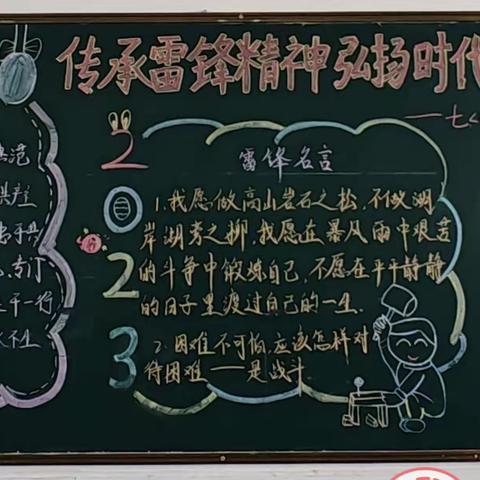 传承雷锋精神弘扬时代
一七
2023
雷锋名言
1.我愿做高山岩石之松,不做湖
岸湖旁之柳,我愿在暴风雨中艰苦
的斗争中锻炼自己,不愿在平平静静
的日子里渡过自己的一生.
2.困难不可怕,应该怎样对
待困难——是战斗